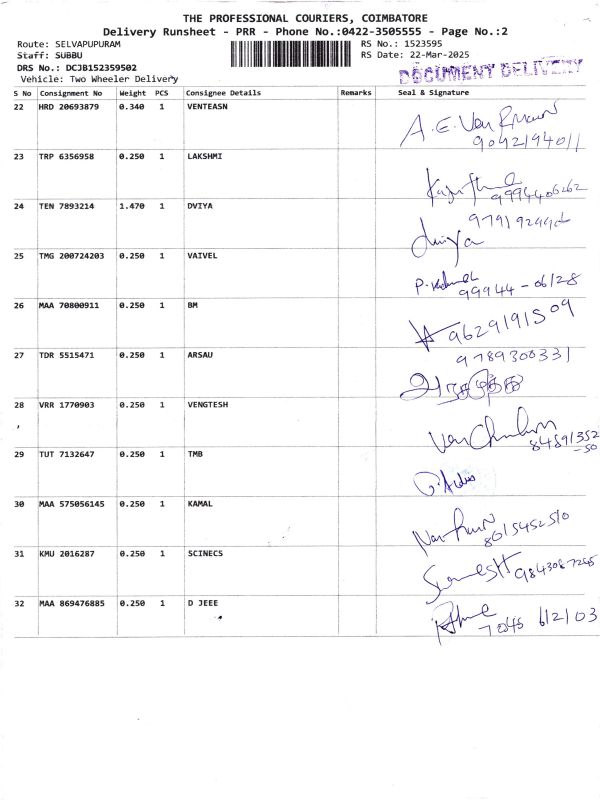 THE PROFESSIONAL COURIERS, COIMBATORE
Delivery Runsheet - PRR - Phone No.:0422-3505555 - Page No.:2
Route: SELVAPUPURAM
Staff: SUBBU
DRS No.: DCJB152359502
Vehicle: Two Wheeler Delivery
RS No.: 1523595
RS Date: 22-Mar-2025
DOCUMENT DELIVERY
S No Consignment No Weight PCS Consignee Details Remarks Seal & Signature
22 HRD 20693879 0.340 1 VENTEASN
9042194011
23 TRP 6356958 0.250 1 LAKSHMI
9994406262
24 TEN 7893214 1.470 1 DVIYA
diviya
25 TMG 200724203 0.250 1 VAIVEL
99944-06128
26 MAA 70800911 0.250 1 BM
9629191509
27 TDR 5515471 0.250 1 ARSAU
9789300331
28 VRR 1770903 0.250 1 VENGTESH
84891352
-50
29 TUT 7132647 0.250 1 TMB
30 MAA 575056145 0.250 1 KAMAL
8015452510
31 KMU 2016287 0.250 1 SCINECS
9843087245
32 MAA 869476885 0.250 1 D JEEE
7045 612103